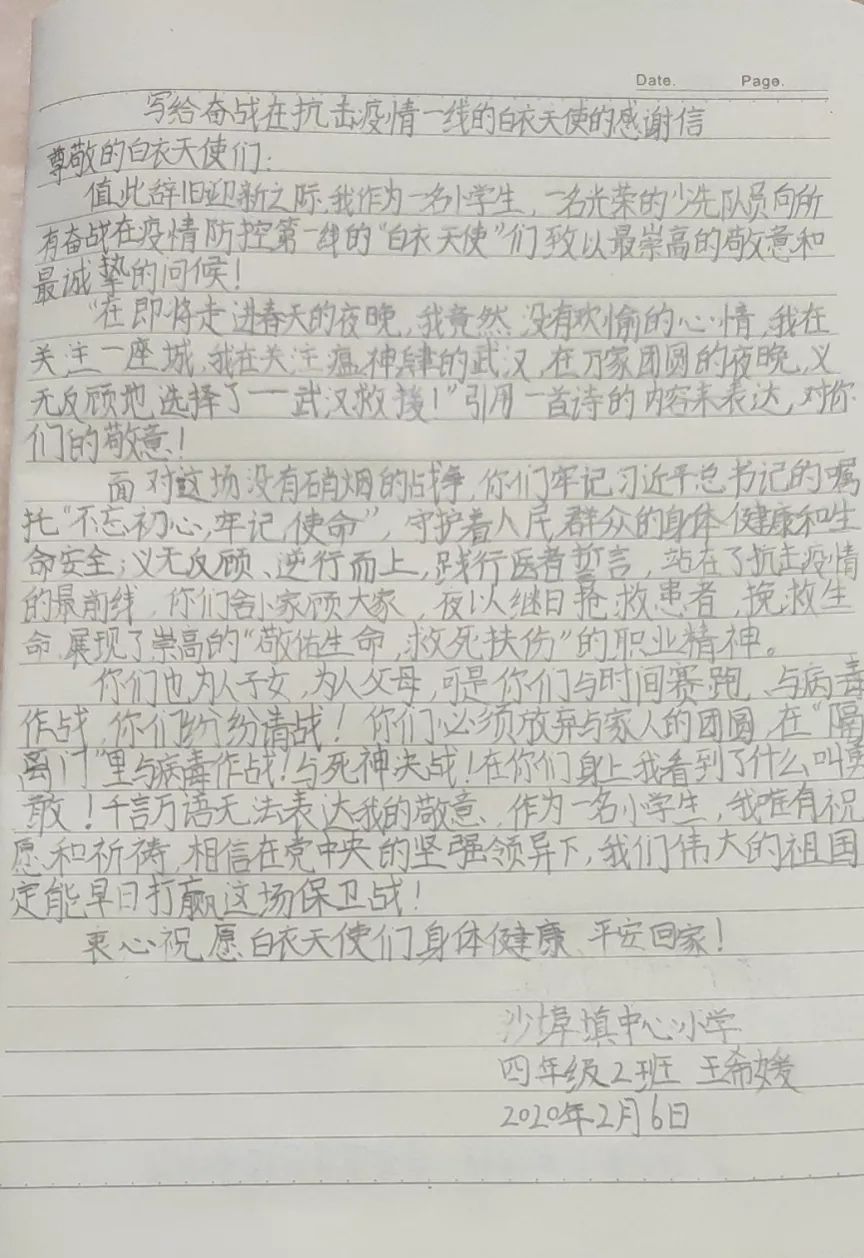 Date. Page.
写给奋战在抗击疫情一线的白衣天使的感谢信
尊敬的白衣天使们：
值此辞旧迎新之际，我作为一名小学生，一名光荣的少先队员向所
有奋战在疫情防控第一线的“白衣天使”们致以最崇高的敬意和
最诚挚的问候！
“在即将走进春天的夜晚，我竟然，没有欢愉的心情，我在
关注一座城，我在关注瘟神肆的武汉，在万家团圆的夜晚，义
无反顾地选择了——武汉救援！”引用一首诗的内容来表达，对你
们的敬意！
面对这场没有硝烟的战争，你们牢记习近平总书记的嘱
托“不忘初心，牢记使命”，守护着人民群众的身体健康和生
命安全；义无反顾、逆行而上，践行医者誓言，站在了抗击疫情
的最前线，你们舍小家顾大家，夜以继日抢救患者，挽救生
命，展现了崇高的“敬佑生命，救死扶伤”的职业精神。
你们也为人子女，为人父母，可是你们与时间赛跑、与病毒
作战，你们纷纷请战！你们必须放弃与家人的团圆，在“隔
离门”里与病毒作战！与死神决战！在你们身上我看到了什么叫勇
敢！千言万语无法表达我的敬意，作为一名小学生，我唯有祝
愿和祈祷，相信在党中央的坚强领导下，我们伟大的祖国
定能早日打赢这场保卫战！
衷心祝愿白衣天使们身体健康、平安回家！
沙埠填中心小学
四年级2班 王希媛
2020年2月6日